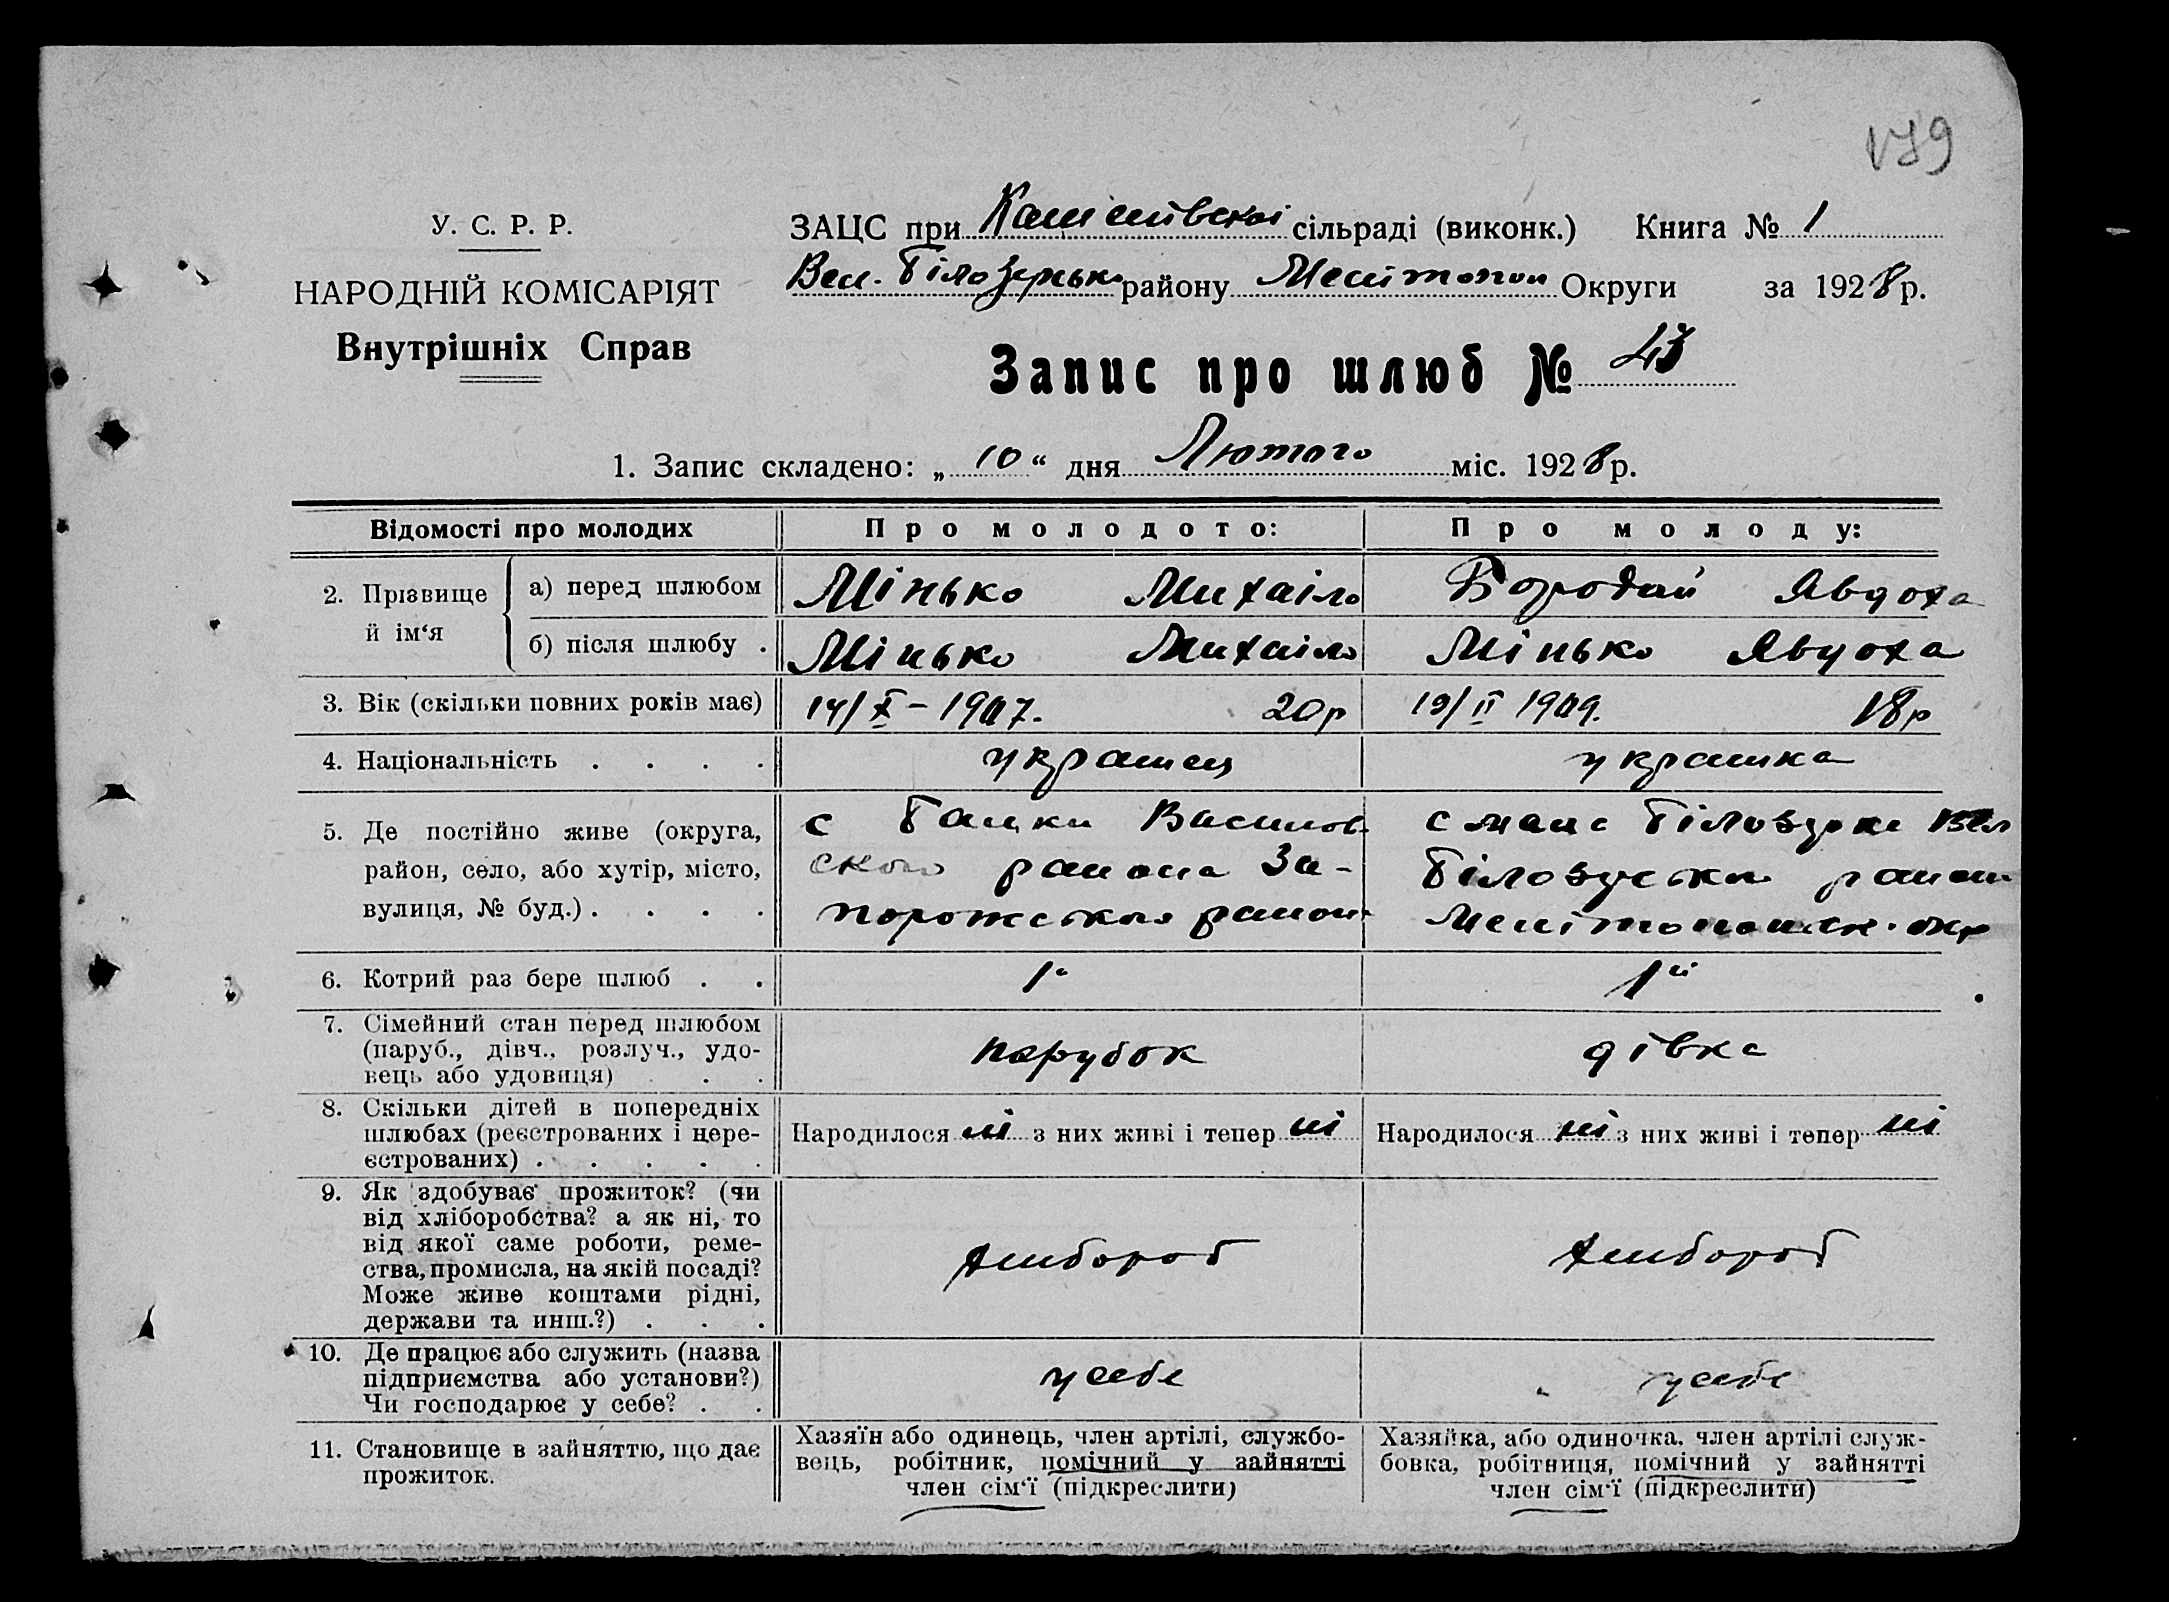 179
У. С. Р. Р.
НАРОДНІЙ КОМІСАРІЯТ
Внутрішніх Справ
ЗАЦС при сільраді (виконк.) Книга № 1
Вел. Білозерськ району Мелітопол Округи за 1928 р.
Запис про шлюб № 43
1. Запис складено: „ 10 “ дня Лютого міс. 1928 р.
Відомості про молодих Про молодого: Про молоду:
2. Прізвище й ім‘я
а) перед шлюбом Мінько Михаіло Бородай Явдоха
б) після шлюбу . Мінько Михаіло Мінько Явдоха
3. Вік (скільки повних років має) 14/X – 1907. 20р 19/II 1909. 18р
4. Національність . . . . украинец украинка
5. Де постійно живе (округа,
район, село, або хутір, місто,
вулиця, № буд.) . . . .
с Балки Василов-
ского района За-
порожського район
с мала Білозерка Вел
Білозерська район
Мелітопольск. окр
6. Котрий раз бере шлюб . . 1й 1й
7. Сімейний стан перед шлюбом
(паруб., дівч., розлуч., удо-
вець або удовиця) . . .
парубок дівка
8. Скільки дітей в попередніх
шлюбах (реєстрованих і нере-
єстрованих) . . . . .
Народилося ні з них живі і тепер ні
Народилося ні з них живі і тепер ні
9. Як здобуває прожиток? (чи
від хліборобства? а як ні, то
від якої саме роботи, реме-
ства, промисла, на якій посаді?
Може живе коштами рідні,
держави та инш.?) . . .
хлибороб хлибороб
10. Де працює або служить (назва
підприємства або установи?)
Чи господарює у себе? . .
у себе у себе
11. Становище в зайняттю, що дає
прожиток.
Хазяїн або одинець, член артілі, службо-
вець, робітник, помічний у зайнятті
член сім‘ї (підкреслити)
Хазяйка, або одиночка, член артілі служ-
бовка, робітниця, помічний у зайнятті
член сім‘ї (підкреслити)